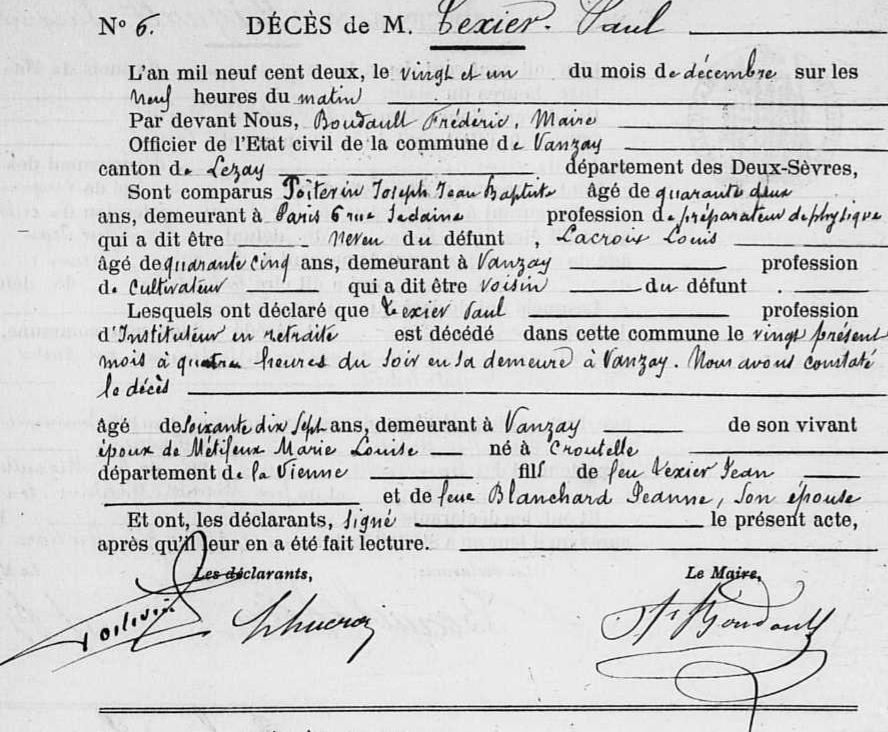 N° 6. DÉCÈS de M. Texier. Paul
L'an mil neuf cent deux, le vingt et un du mois de décembre sur les
neuf heures du matin
Par devant Nous, Boudault Frédéric, Maire
Officier de l'Etat civil de la commune de Vanzay
canton de Lezay département des Deux-Sèvres,
Sont comparus Poitevin Joseph Jean Baptiste âgé de quarante deux
ans, demeurant à Paris 6 rue Sedaine profession de préparateur de physique
qui a dit être neveu du défunt, Lacroix Louis
âgé de quarante cinq ans, demeurant à Vanzay profession
de Cultivateur qui a dit être voisin du défunt.
Lesquels ont déclaré que Texier Paul profession
d'Instituteur en retraite est décédé dans cette commune le vingt présent
mois à quatre heures du soir en sa demeure à Vanzay. Nous avons constaté
le décès
âgé de soixante dix sept ans, demeurant à Vanzay de son vivant
époux de Métifeux Marie Louise né à Croutelle
département de la Vienne fils de feu Texier Jean
et de feue Blanchard Jeanne, son épouse
Et ont, les déclarants, signé le présent acte,
après qu'il leur en a été fait lecture.
Les déclarants, Le Maire,
Poitevin Lacroix Fr Boudault